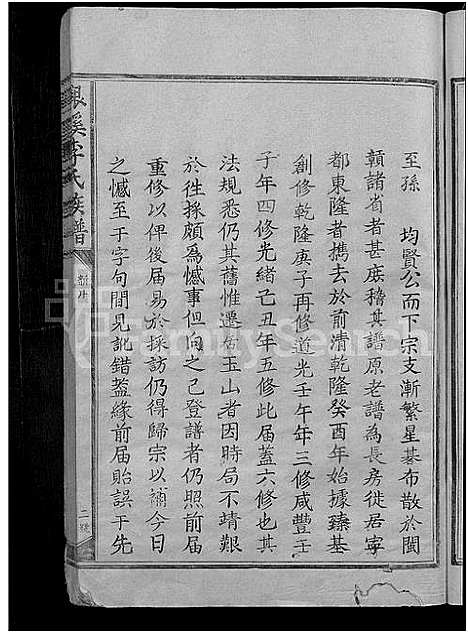 至孫 均賢公而下宗支漸繁星碁布散於閩
贛諸省者甚庶稽其譜原老譜為長房徙居寧
都東隆者攜去於前清乾隆癸酉年始據臻基
創修乾隆庚子再修道光壬午年三修咸豐壬
子年四修光緒己丑年五修此届蓋六修也其
法規悉仍其舊惟遷居玉山者因時局不靖艱
於徃採頗為憾事但向之已登譜者仍照前届
重修以俾後届易於採訪仍得歸宗以補今日
之憾至于字句間見訛錯蓋緣前届貽誤于先
溪李氏族譜
新序
二
FamilySearch